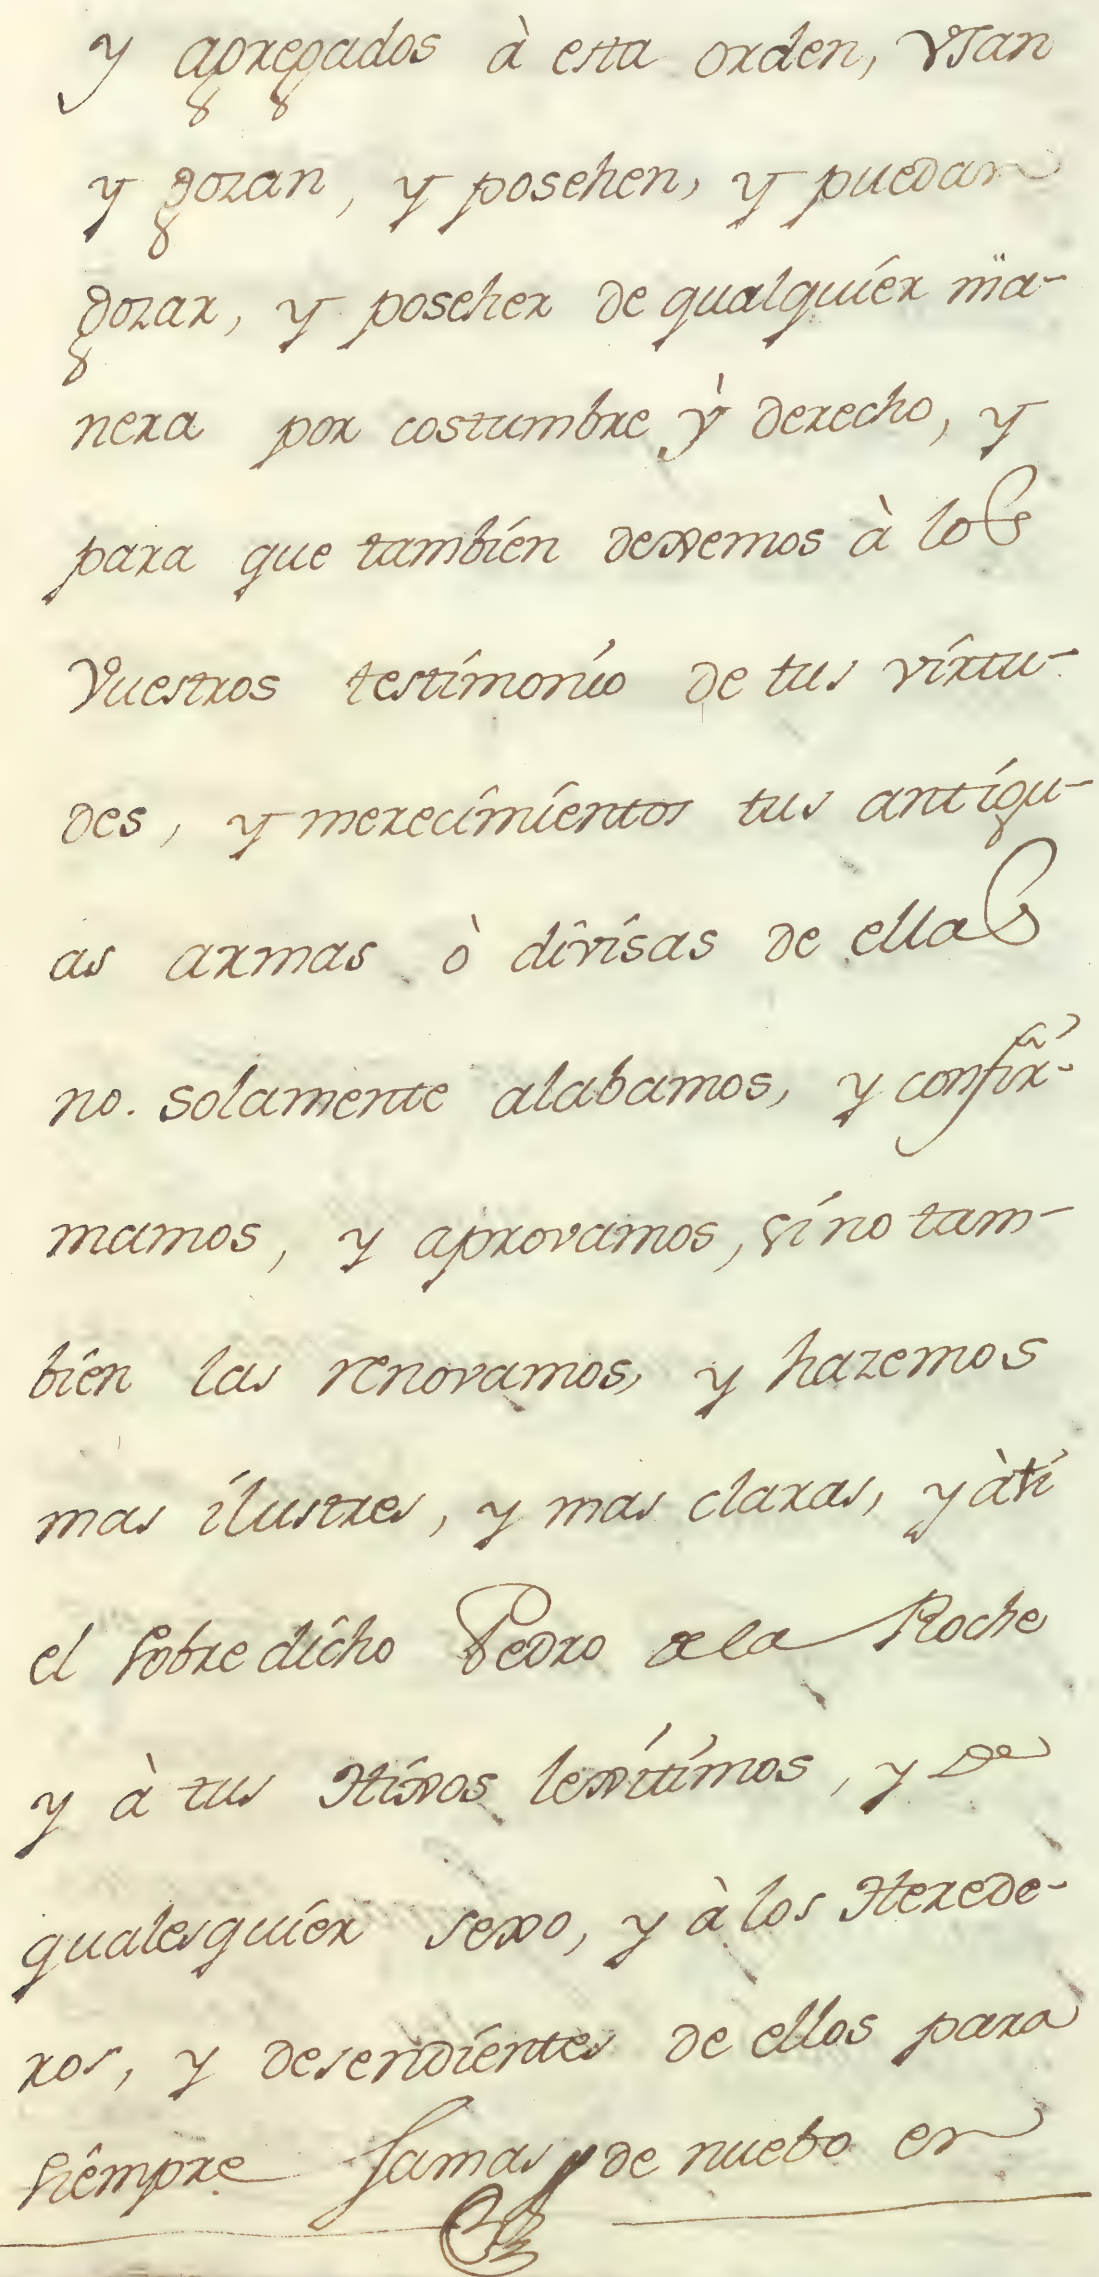 y agregados à esta orden, Vsan
y gozan, y posehen, y puedan
gozar, y poseher de qualquiér ma-
nera por costumbre y derecho, y
para que también dexemos à los
Vuestros testimonio de tus virtu-
des, y merecimientos tus antigu-
as armas ò divisas de ellas
no solamente alabamos, y confir-
mamos, y aprovamos, sino tam-
bien las renovamos, y hazemos
mas ilustres, y mas claras, y à ti
el sobre dicho Pedro de la Roche
y à tus Hixos lexitimos, y de
qualesquier sexo, y à los Herede-
ros, y desendientes de ellos para
siempre Jamas, de nuebo en